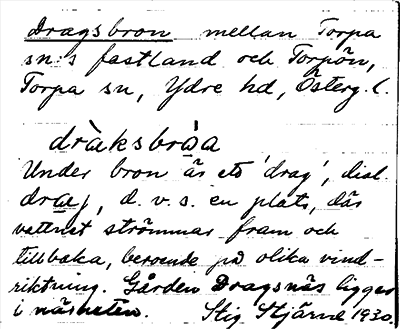 Dragsbron mellan Torpa
sn:s fastland och Torpön,
Torpa sn, Ydre hd, Österg. l.
dràksbròa
Under bron är ett 'drag', dial.
draj, d.v.s. en plats, där
vattnet strömmar fram och
tillbaka, beroende på olika vind-
riktning. Gården Dragsnäs ligger
i närheten. Stig Stjärne 1930.